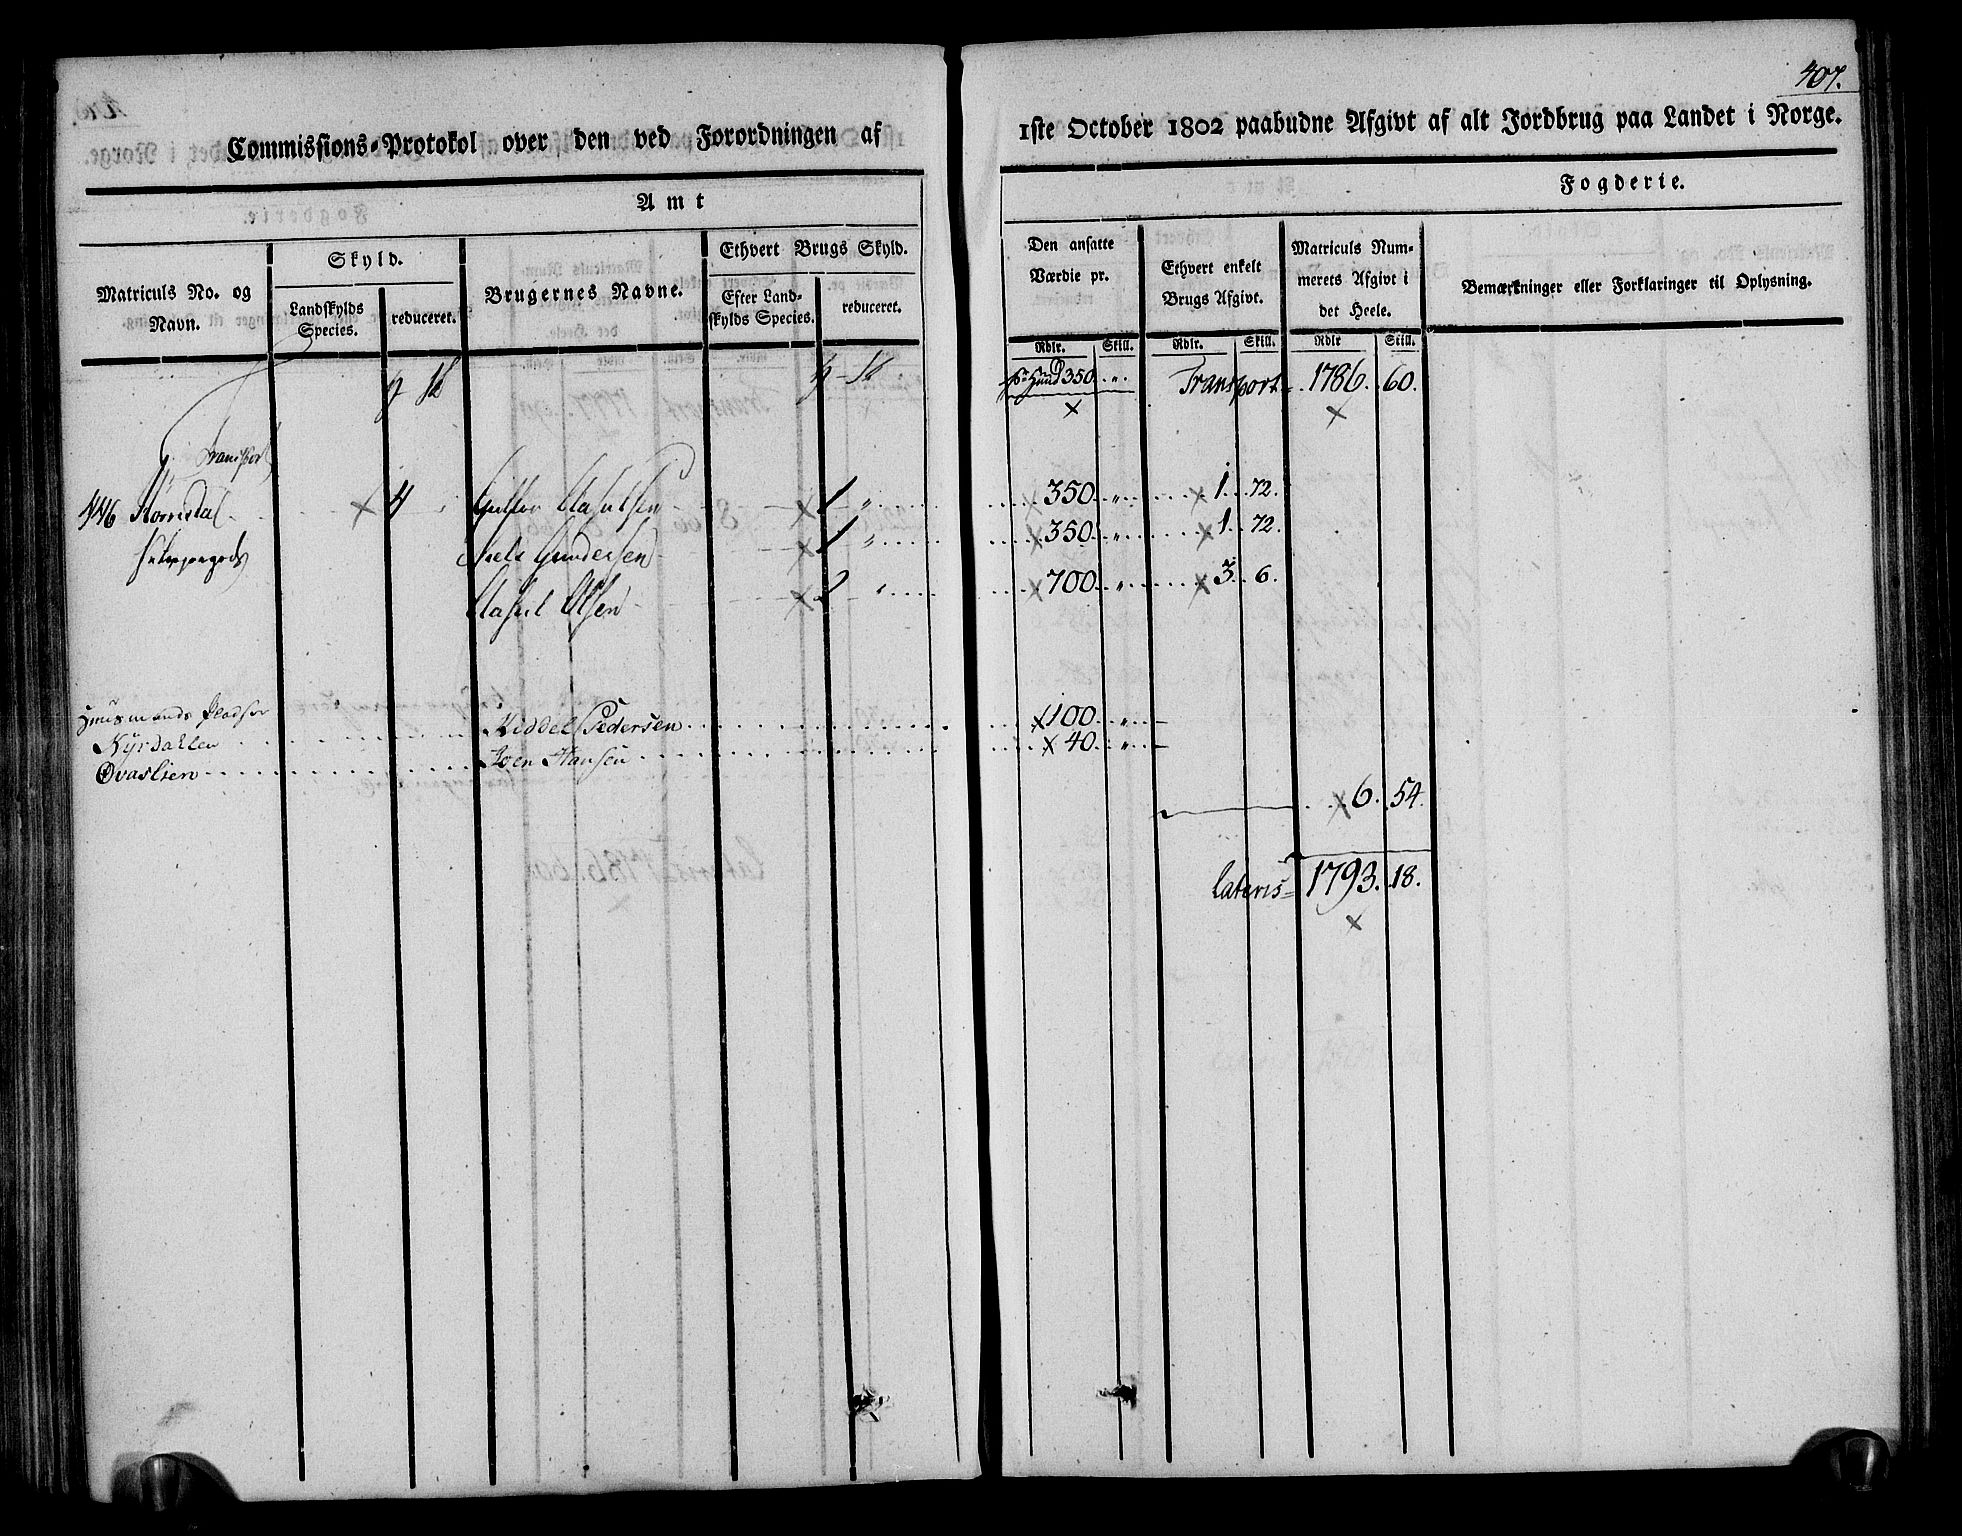 407.
Commissions-Protokol over den ved Forordningen af 1ste October 1802 paabudne Afgivt af alt Jordbrug paa Landet i Norge.
Amt Fogderie.
Matriculs No. og Navn.
Skyld.
Landskylds Species.
reduceret.
Brugernes Navne.
Ethvert Brugs Skyld.
Efter Landskylds Species.
reduceret.
Den ansatte Værdie pr.
Ethvert enkelt Brugs Afgivt.
Matriculs Nummerets Afgivt i det Heele.
Bemærkninger eller Forklaringer til Oplysning.
Rdlr. Skill. Rdlr. Skill. Rdlr Skill.
pr Hund 350 " Transport = 1786. 60.
Transport
446 4 1 " 350 " 1. 72.
Niels Gundersen 1 " 350 " 1. 72.
Olsen 2 " 700 " 3. 6.
Huusmands Pladser
Nyrdahlen Kiddel Pedersen 100 " —
Ovaslien Joen Hansen 40 " —
6. 54.
Lateris = 1793. 18.